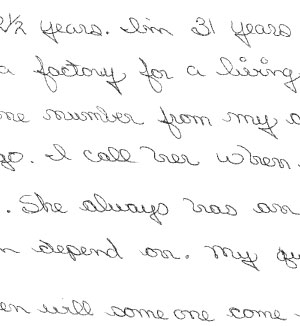 2½ years. I'm 31 years
a factory for a living
one number from my
go. I call her when
. She always has an
n depend on. My
en will some one come